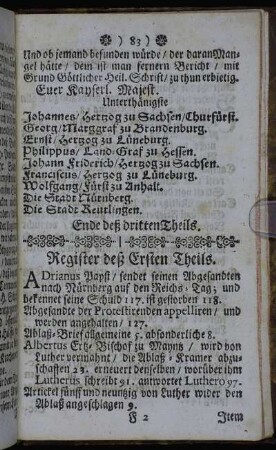 ) 83 (
Und ob jemand befunden würde / der daran Man-
gel hätte / dem ist man fernern Bericht / mit
Grund Göttlicher Heil. Schrift / zu thun erbietig.
Euer Kayserl. Majest.
Unterthänigste
Johannes / Hertzog zu Sachsen / Churfürst.
Georg / Marggraf zu Brandenburg.
Ernst / Hertzog zu Lüneburg.
Philippus / Land-Graf zu Hessen.
Johann Friderich / Hertzog zu Sachsen.
Franciscus / Hertzog zu Lüneburg.
Wolfgang / Fürst zu Anhalt.
Die Stadt Nürnberg.
Die Stadt Reutlingen.
Ende deß dritten Theils.
Register deß Ersten Theils.
ADrianus Papst / sendet seinen Abgesandten
nach Nürnberg auf den Reichs-Tag; und
bekennet seine Schuld 117. ist gestorben 118.
Abgesandte der Protestirenden appelliren / und
werden angehalten / 127.
Ablaß-Brief allgemeine 5. absonderliche 8.
Albertus Ertz-Bischof zu Mayntz / wird von
Luther vermahnt / die Ablaß-Kramer abzu-
schaffen 23. erneuert denselben / worüber ihm
Lutherus schreibt 91. antwortet Luthero 97.
Artickel fünff und neuntzig von Luther wider den
Ablaß angeschlagen 9.
F 2 Item